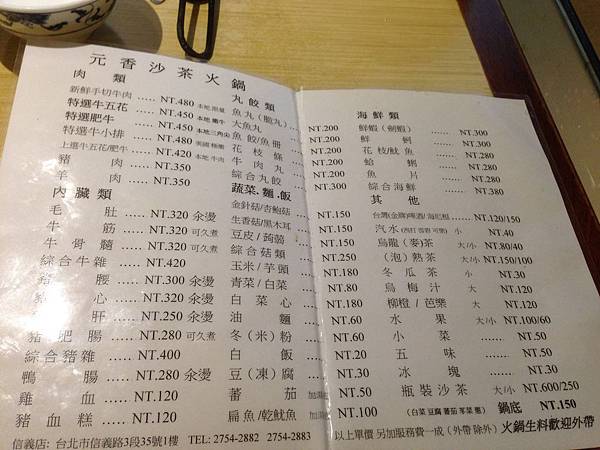 元香沙茶火鍋
肉類
新鮮手切牛肉 ..... NT.480 本地 限量
特選牛五花 ..... NT.450 本地 嫩牛
特選肥牛 ..... NT.450 本地三角尖
特選牛小排 ..... NT.480 美國 極嫩
上選牛五花/肥牛 ..... NT.420 本地 牛肉
豬肉 ..... NT.350
羊肉 ..... NT.350
內臟類
毛肚 ..... NT.320 氽燙
牛筋 ..... NT.320 可久煮
牛骨髓 ..... NT.320 氽燙
綜合牛雜 ..... NT.420
豬腰 ..... NT.300 氽燙
心 ..... NT.320 氽燙
肝 ..... NT.250 氽燙
豬肥腸 ..... NT.280 可久煮
綜合豬雜 ..... NT.400
鴨腸 ..... NT.280 氽燙
雞血 ..... NT.120
豬血糕 ..... NT.120
丸餃類
魚丸(脆丸) ..... NT.200
大魚丸 ..... NT.200
魚餃/魚冊 ..... NT.200
花枝條 ..... NT.200
牛肉丸 ..... NT.200
綜合丸餃 ..... NT.300
蔬菜.麵.飯
金針菇/杏鮑菇 NT.150
生香菇/黑木耳 NT.150
豆皮/蒟蒻 NT.150
綜合菇類 ..... NT.250
玉米/芋頭 NT.180
青菜/白菜 NT.80
白菜心 NT.180
油麵 NT.60
冬(米)粉 NT.60
白飯 NT.20
豆(凍)腐 NT.30
蕃茄 NT.50
扁魚/乾魷魚 NT.100
海鮮類
鮮蝦(劍蝦) ..... NT.300
鮮蚵 ..... NT.300
花枝/魷魚 ..... NT.280
蛤蜊 ..... NT.280
魚片 ..... NT.280
綜合海鮮 ..... NT.380
其他
台灣(金牌)啤酒/海尼根 ..... NT.120/150
汽水 小 NT.40
烏龍(麥)茶 大/小 NT.80/40
(泡)熱茶 大/小 NT.150/100
冬瓜茶 小 NT.30
烏梅汁 大 NT.120
柳橙/芭樂 大 NT.120
水果 大/小 NT.100/60
小菜 ..... NT.50
五味 ..... NT.50
冰塊 ..... NT.30
瓶裝沙茶 大/小 NT.600/250
(白菜 豆腐 蕃茄 芋菜 麵) 鍋底 NT.120
信義店: 台北市信義路3段35號1樓 TEL: 2754-2882 2754-2883
以上單價 另加服務費一成(外帶 除外) 火鍋生料歡迎外帶